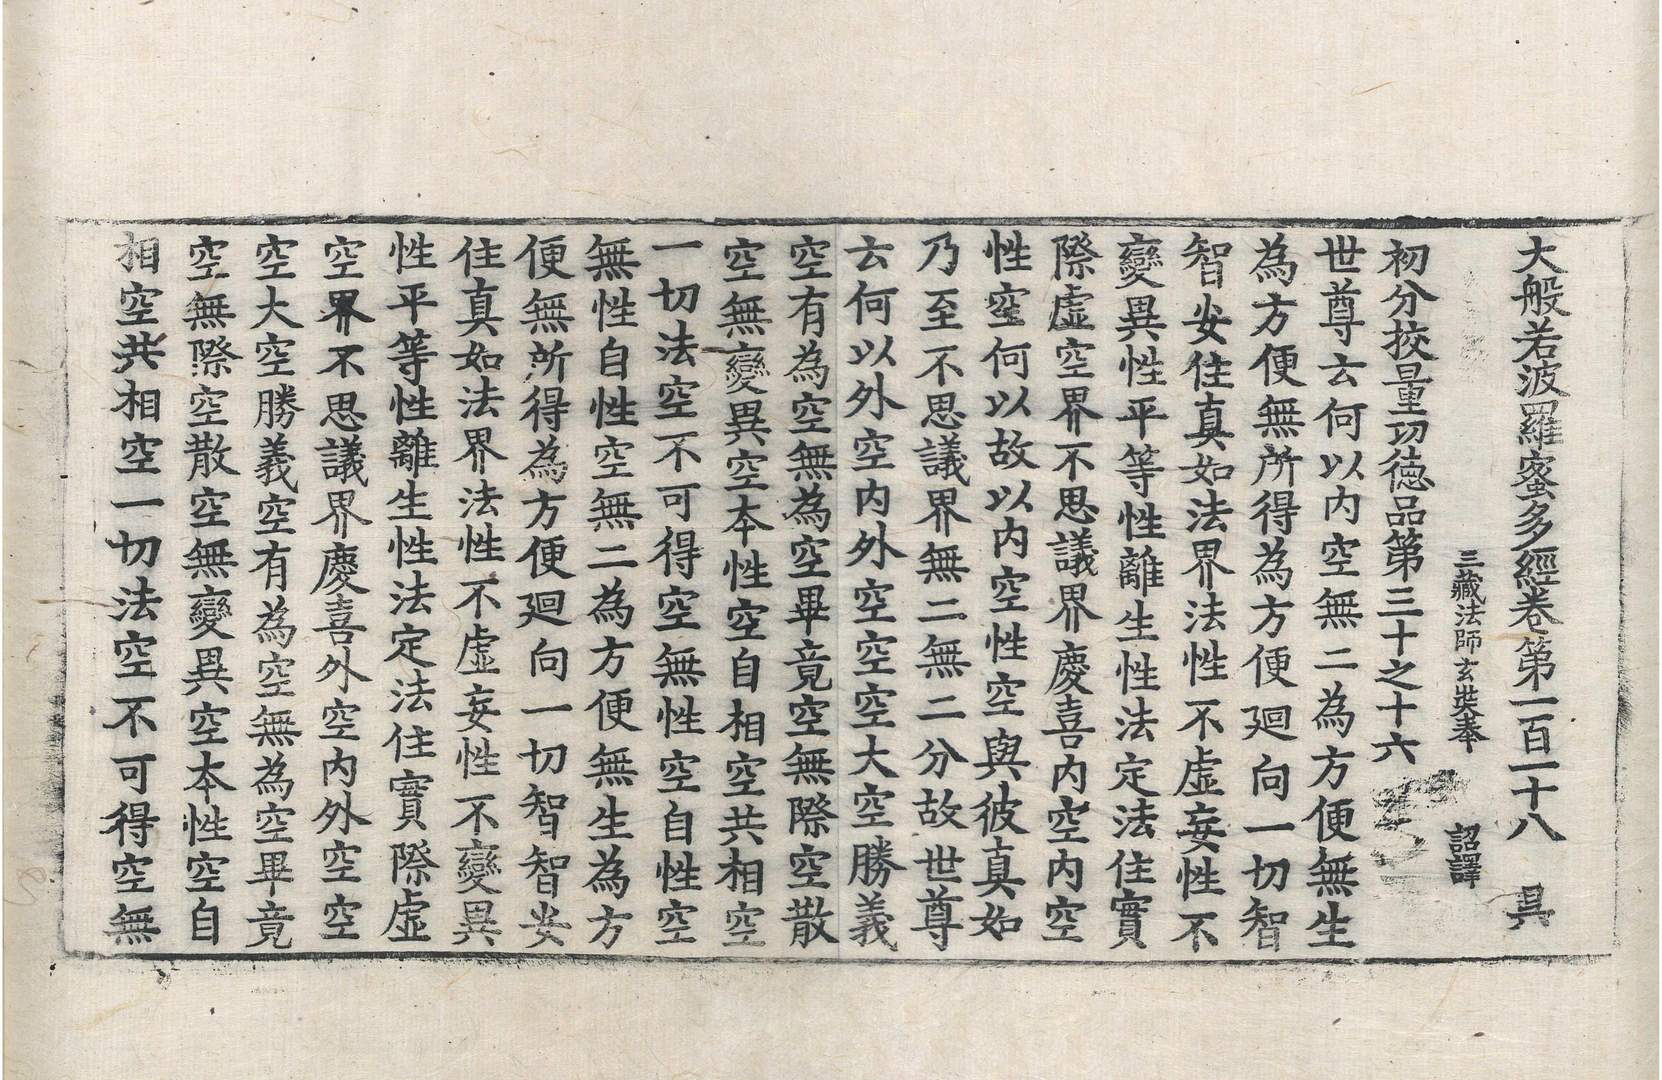 大般若波羅蜜多經卷第一百一十八 具
三藏法師玄奘奉 詔譯
初分挍量功德品第三十之十六
世尊云何以内空無二為方便無生
為方便無所得為方便迴向一切智
智安住真如法界法性不虛妄性不
變異性平等性離生性法定法住實
際虛空界不思議界慶喜内空内空
性空何以故以内空性空與彼真如
乃至不思議界無二無二分故世尊
云何以外空内外空空空大空勝義
空有為空無為空畢竟空無際空散
空無變異空本性空自相空共相空
一切法空不可得空無性空自性空
無性自性空無二為方便無生為方
便無所得為方便迴向一切智智安
住真如法界法性不虛妄性不變異
性平等性離生性法定法住實際虛
空界不思議界慶喜外空内外空空
空大空勝義空有為空無為空畢竟
空無際空散空無變異空本性空自
相空共相空一切法空不可得空無